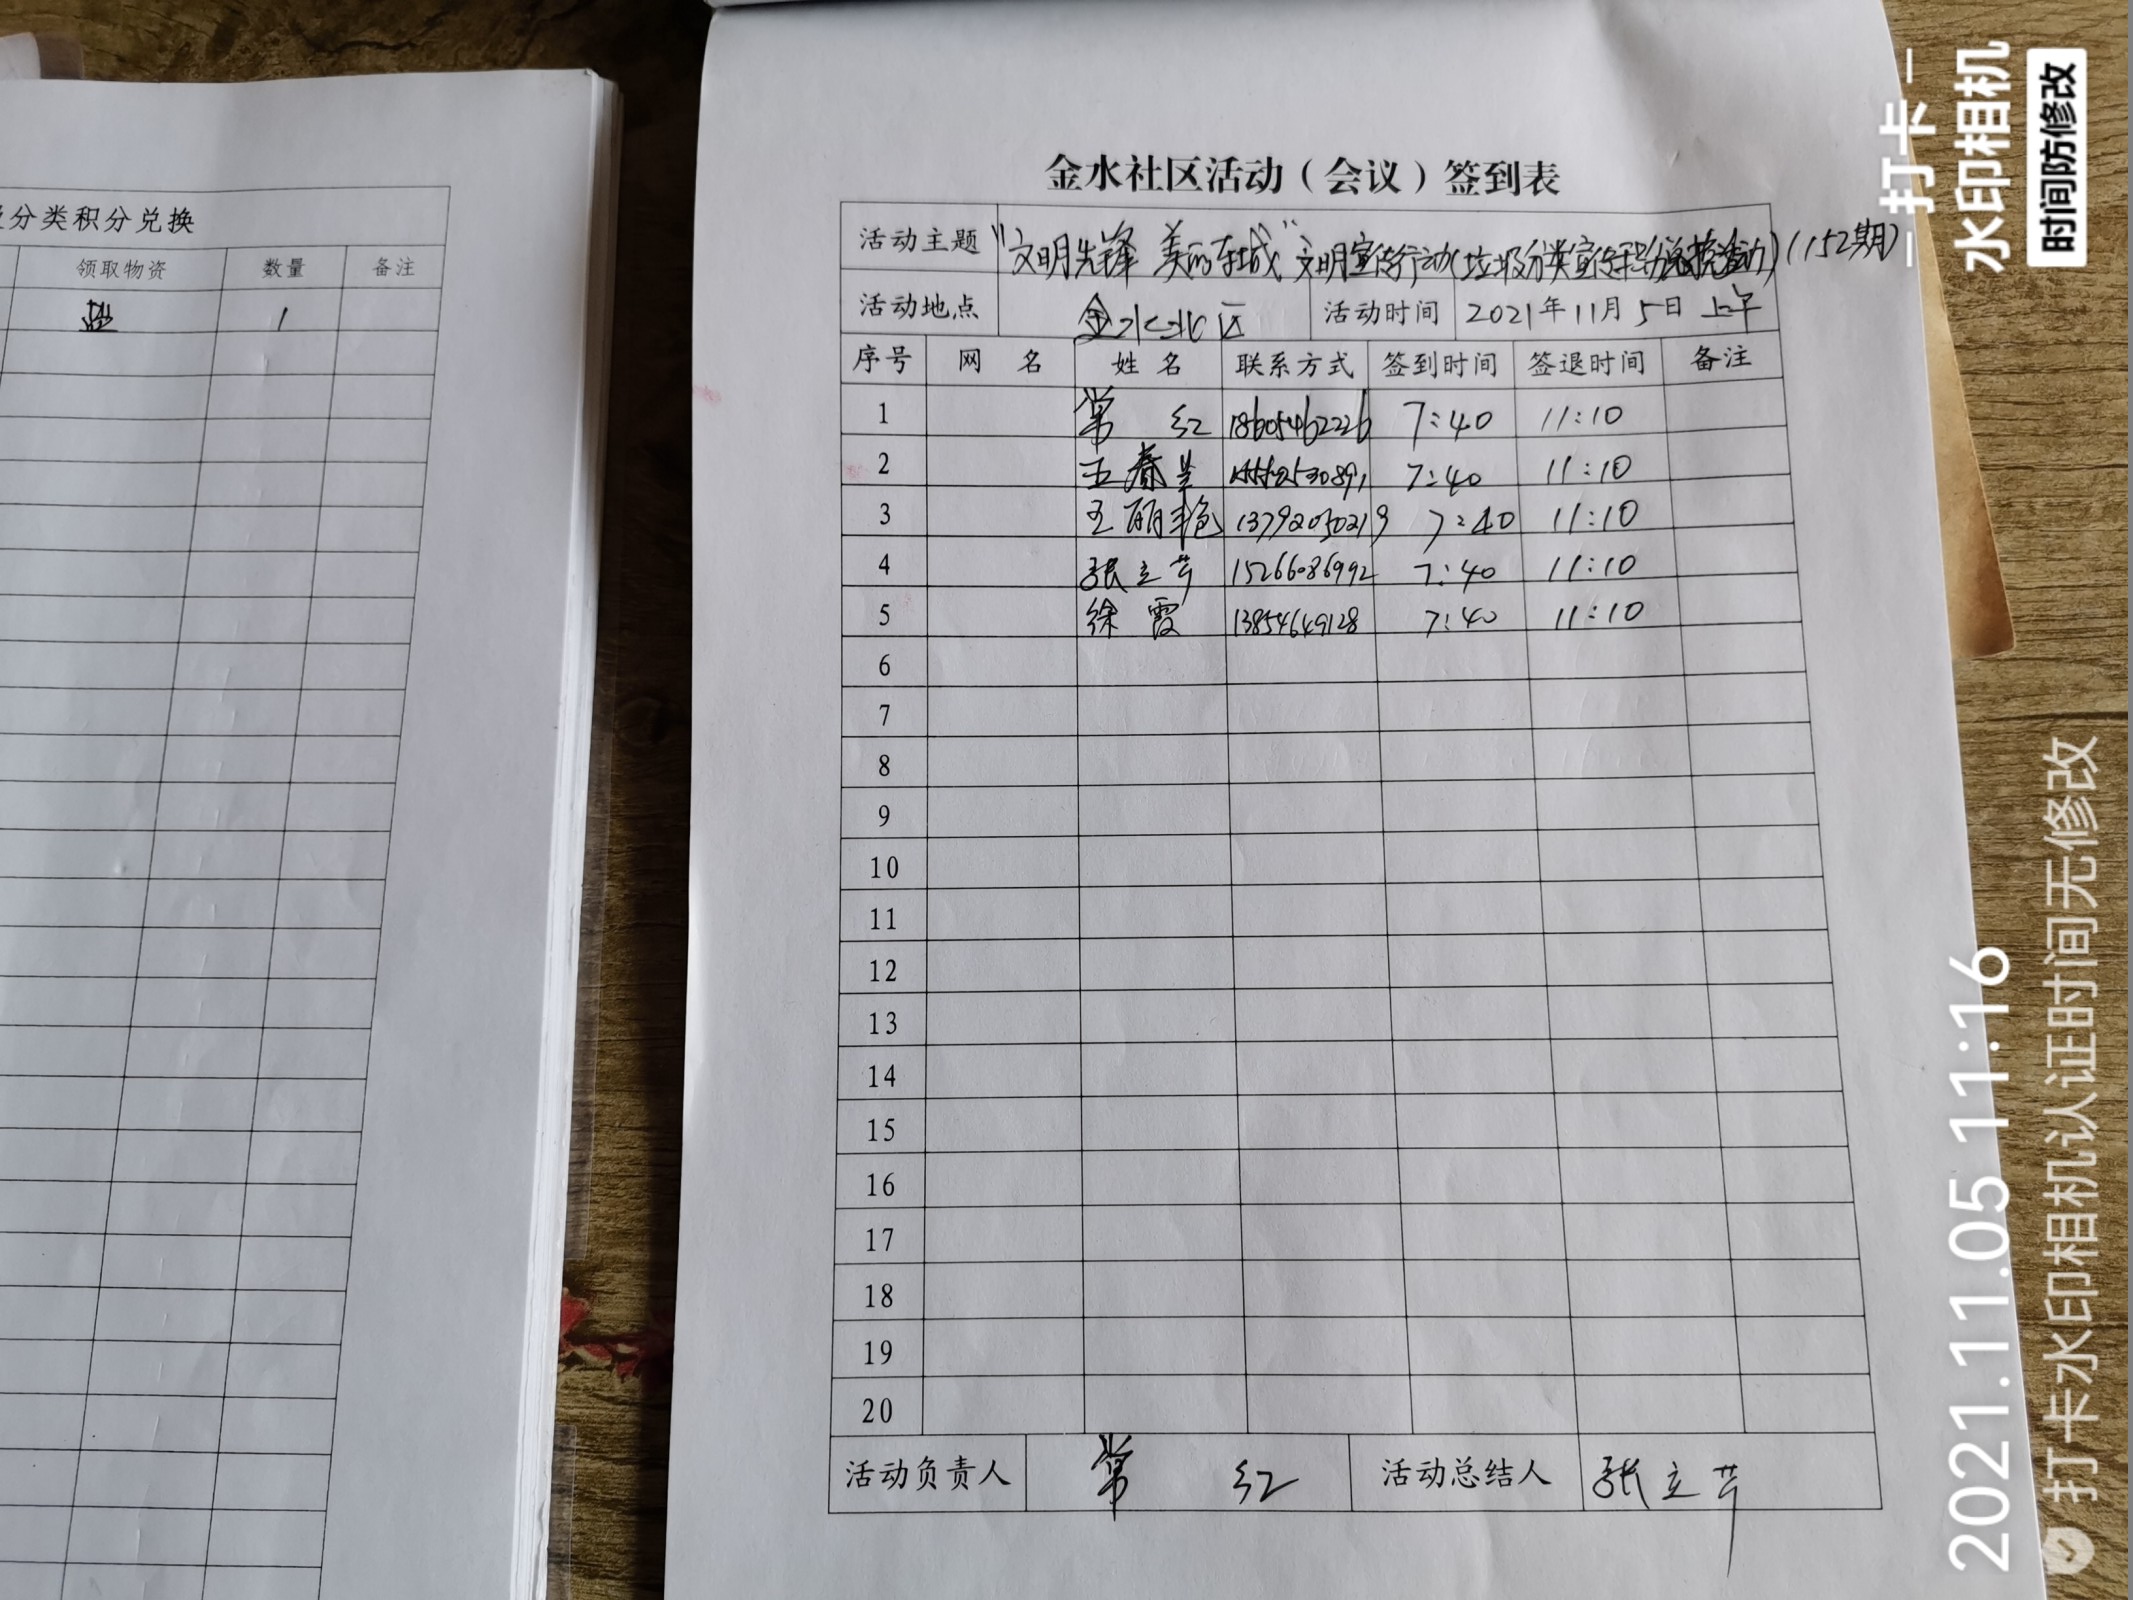 分类积分兑换
领取物资 数量 备注
盐 1
金水社区活动（会议）签到表
活动主题 “文明先锋 美丽东城”文明宣传行动(垃圾分类宣传积分兑换活动)(152期)
活动地点 金水北区 活动时间 2021年11月5日 上午
序号 网 名 姓 名 联系方式 签到时间 签退时间 备注
1 常 红 18605462226 7:40 11:10
2 王春兰 7:40 11:10
3 王丽艳 13792050219 7:40 11:10
4 张立芹 15266086992 7:40 11:10
5 徐霞 13854649128 7:40 11:10
6
7
8
9
10
11
12
13
14
15
16
17
18
19
20
活动负责人 常 红 活动总结人 张立芹
打卡
水印相机
时间防修改
2021.11.05 11:16
打卡水印相机认证时间无修改